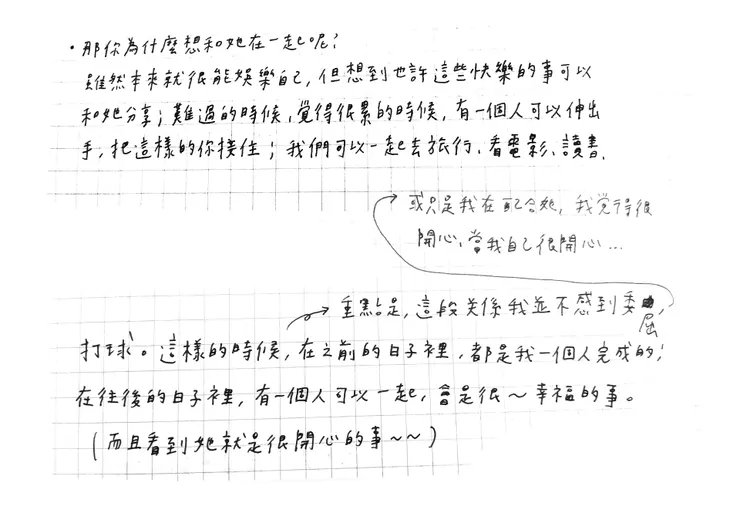 ・那你為什麼想和她在一起呢？
雖然本來就很能娛樂自己，但想到也許這些快樂的事可以
和她分享；難過的時候、覺得很累的時候，有一個人可以伸出
手，把這樣的你接住；我們可以一起去旅行、看電影、讀書、
或只是我在配合她，我覺得很
開心、當我自己很開心...
重點是，這段关係我並不感到委屈，
打球。這樣的時候，在之前的日子裡，都是我一個人完成的；
在往後的日子裡，有一個人可以一起，會是很～幸福的事。
（而且看到她就是很開心的事~~）